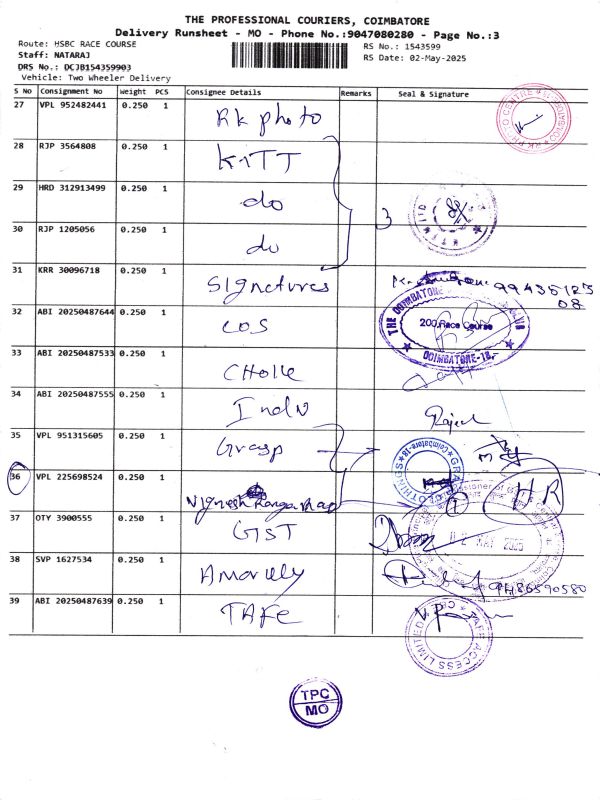 THE PROFESSIONAL COURIERS, COIMBATORE
Delivery Runsheet - MO - Phone No.:9047080280 - Page No.:3
Route: HSBC RACE COURSE
RS No.: 1543599
Staff: NATARAJ
RS Date: 02-May-2025
DRS No.: DCJB154359903
Vehicle: Two Wheeler Delivery
S No Consignment No Weight PCS Consignee Details Remarks Seal & Signature
27 VPL 952482441 0.250 1 RK photo
28 RJP 3564808 0.250 1 KITT
29 HRD 312913499 0.250 1 do
30 RJP 1205056 0.250 1 do
3
31 KRR 30096718 0.250 1 Signetures 99435123
08
32 ABI 20250487644 0.250 1 COS
THE COIMBATORE
200, Race Course
COIMBATORE-18.
33 ABI 20250487533 0.250 1
34 ABI 20250487555 0.250 1
35 VPL 951315605 0.250 1 Grasp
Coimbatore-18
36 VPL 225698524 0.250 1 Vignesh HR
37 OTY 3900555 0.250 1 GST
02 MAY 2025
38 SVP 1627534 0.250 1
39 ABI 20250487639 0.250 1 TAFE
ACCESS LIMITED
TPC
MO